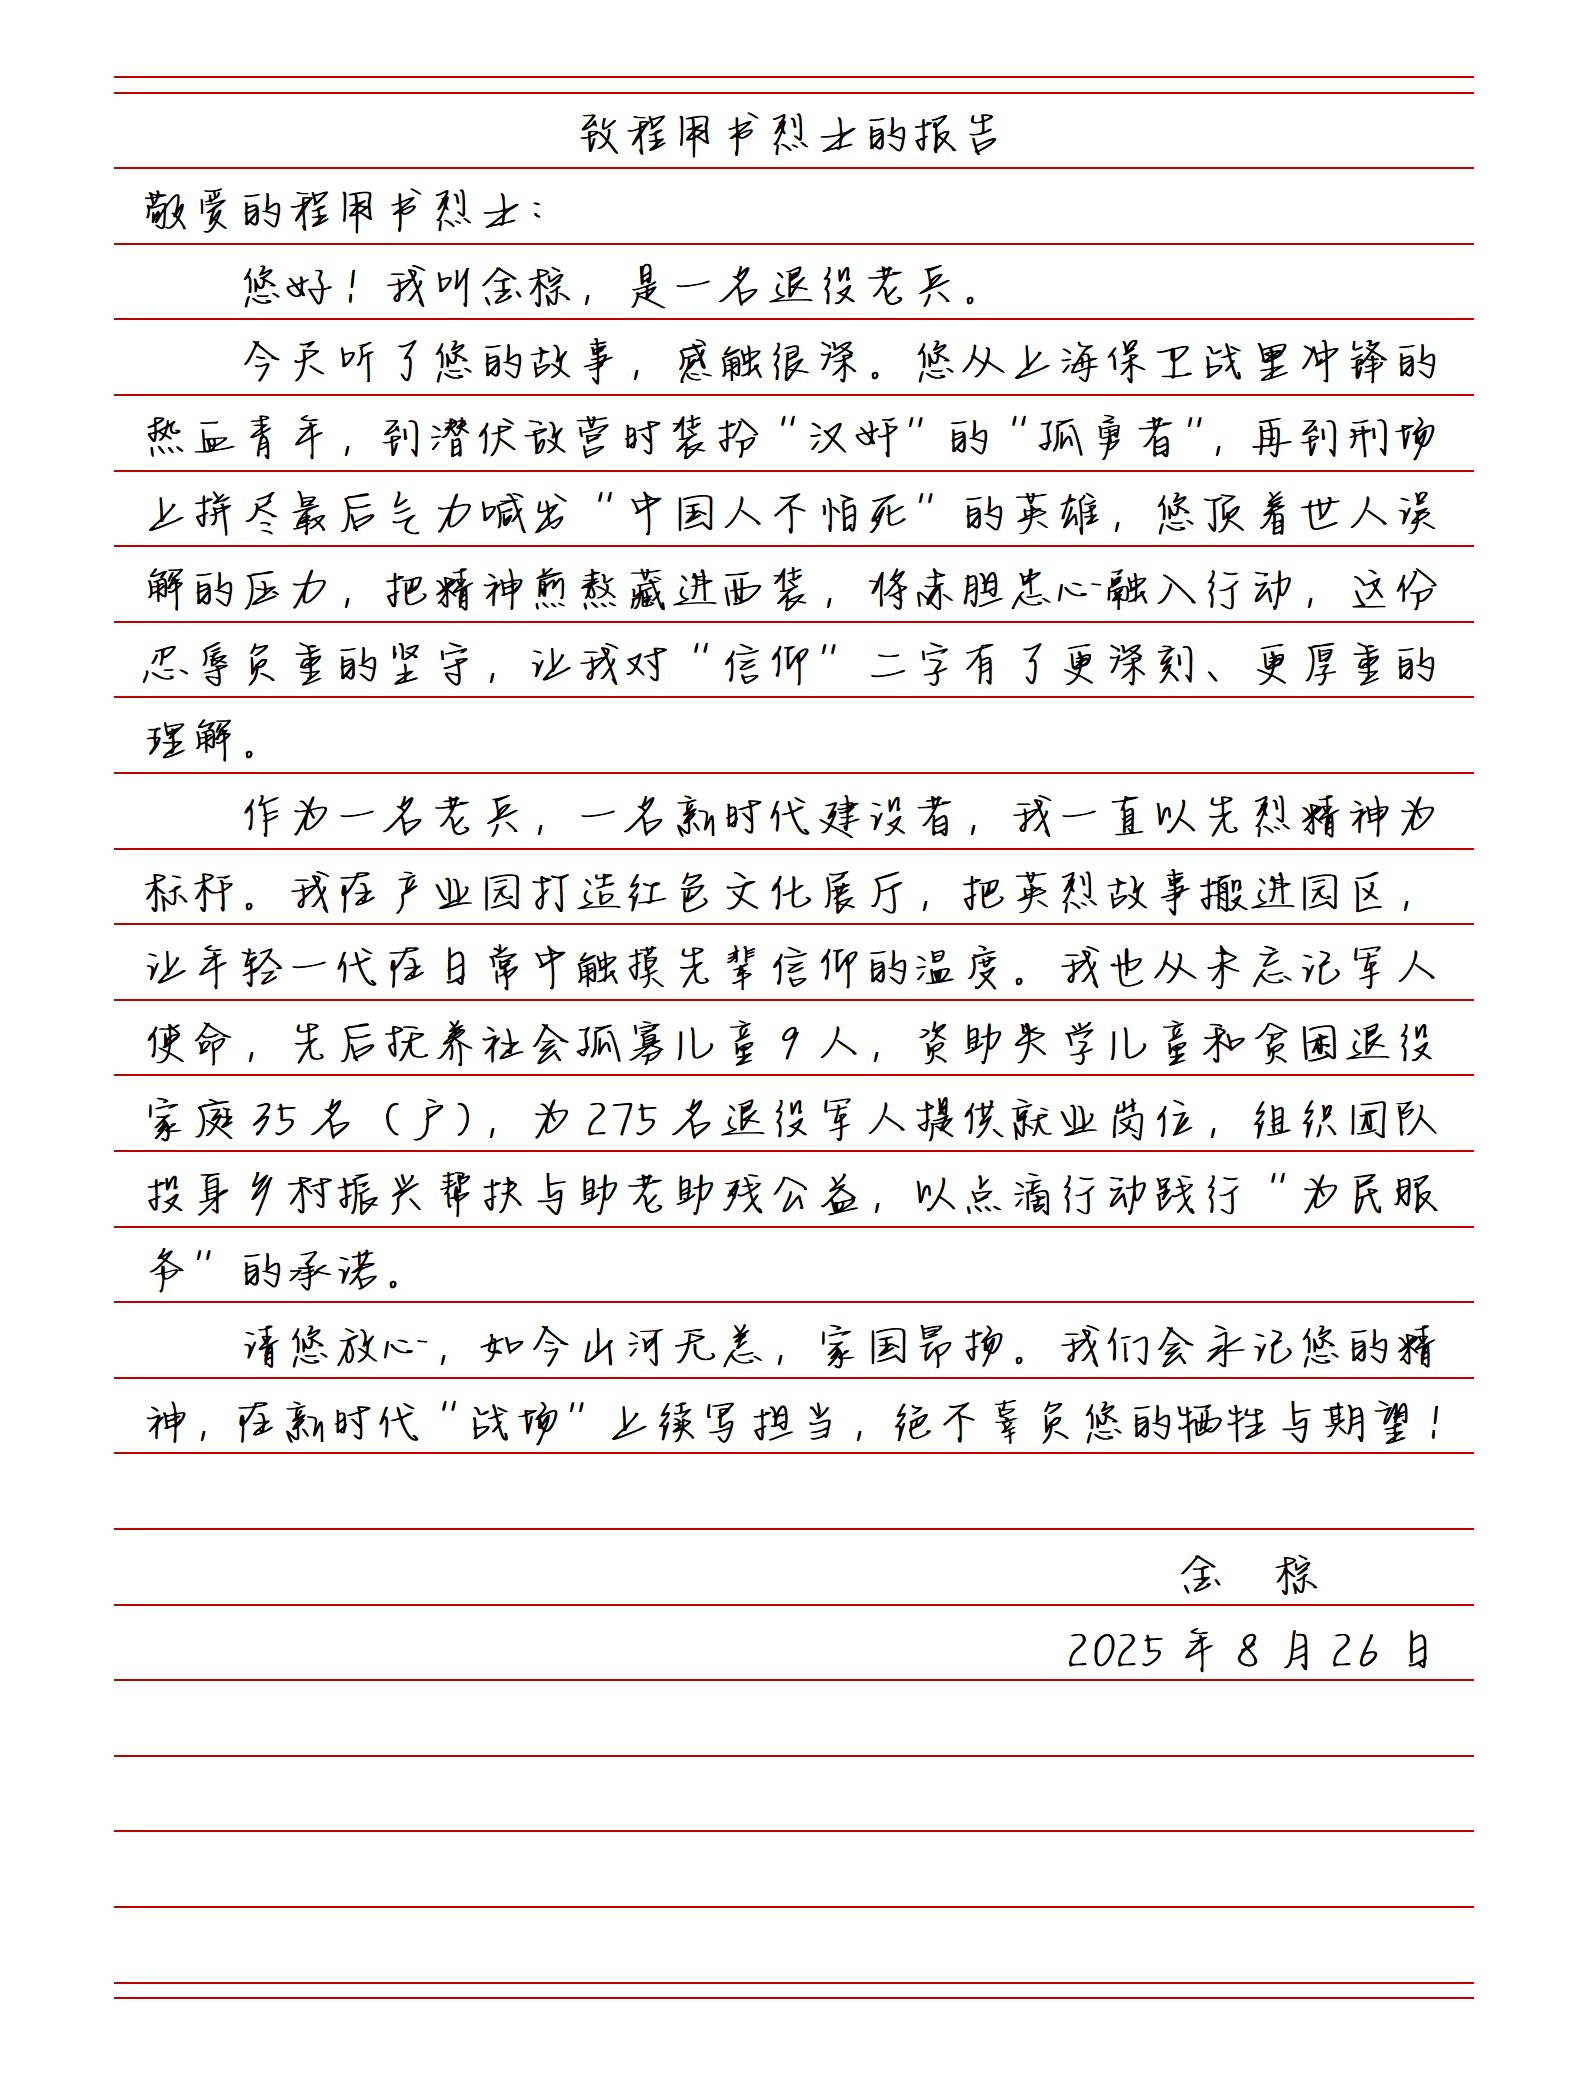 致程用书烈士的报告
敬爱的程用书烈士：
您好！我叫金棕，是一名退役老兵。
今天听了您的故事，感触很深。您从上海保卫战里冲锋的
热血青年，到潜伏敌营时装扮“汉奸”的“孤勇者”，再到刑场
上拼尽最后气力喊出“中国人不怕死”的英雄，您顶着世人误
解的压力，把精神煎熬藏进西装，将赤胆忠心融入行动，这份
忍辱负重的坚守，让我对“信仰”二字有了更深刻、更厚重的
理解。
作为一名老兵，一名新时代建设者，我一直以先烈精神为
标杆。我在产业园打造红色文化展厅，把英烈故事搬进园区，
让年轻一代在日常中触摸先辈信仰的温度。我也从未忘记军人
使命，先后抚养社会孤寡儿童9人，资助失学儿童和贫困退役
家庭35名（户），为275名退役军人提供就业岗位，组织团队
投身乡村振兴帮扶与助老助残公益，以点滴行动践行“为民服
务”的承诺。
请您放心，如今山河无恙，家国昂扬。我们会永记您的精
神，在新时代“战场”上续写担当，绝不辜负您的牺牲与期望！
金 棕
2025年8月26日